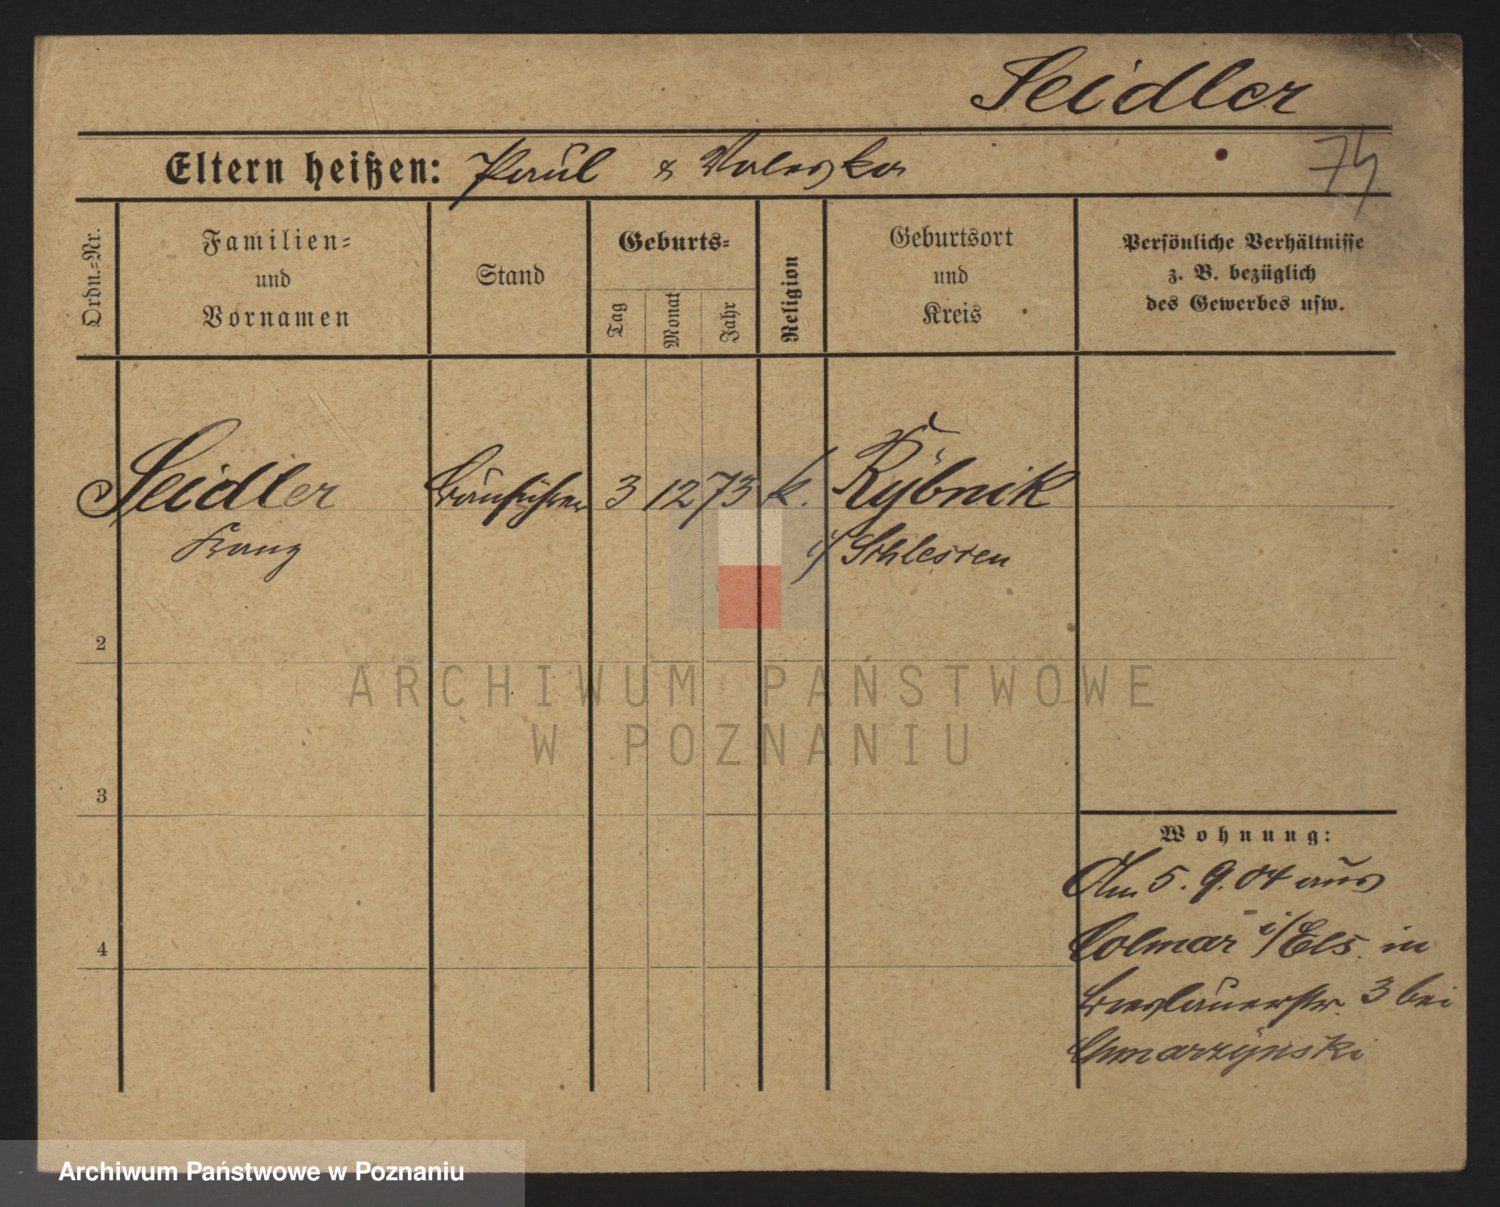 Seidler
Eltern heißen: Paul & Valeska
74
Ordn.-Nr.
Familien-
und
Vornamen
Stand
Geburts-
Tag
Monat
Jahr
Religion
Geburtsort
und
Kreis
Persönliche Verhältnisse
z. B. bezüglich
des Gewerbes usw.
Seidler Bauführer 3 12 73 k. Rybnik
Franz i/ Schlesien
2
3
4
Wohnung:
Am 5. 9. 04 aus
Colmar i/Els. in
Breslauerstr. 3 bei
Chmarzynski
ARCHIWUM PAŃSTWOWE
W POZNANIU
Archiwum Państwowe w Poznaniu